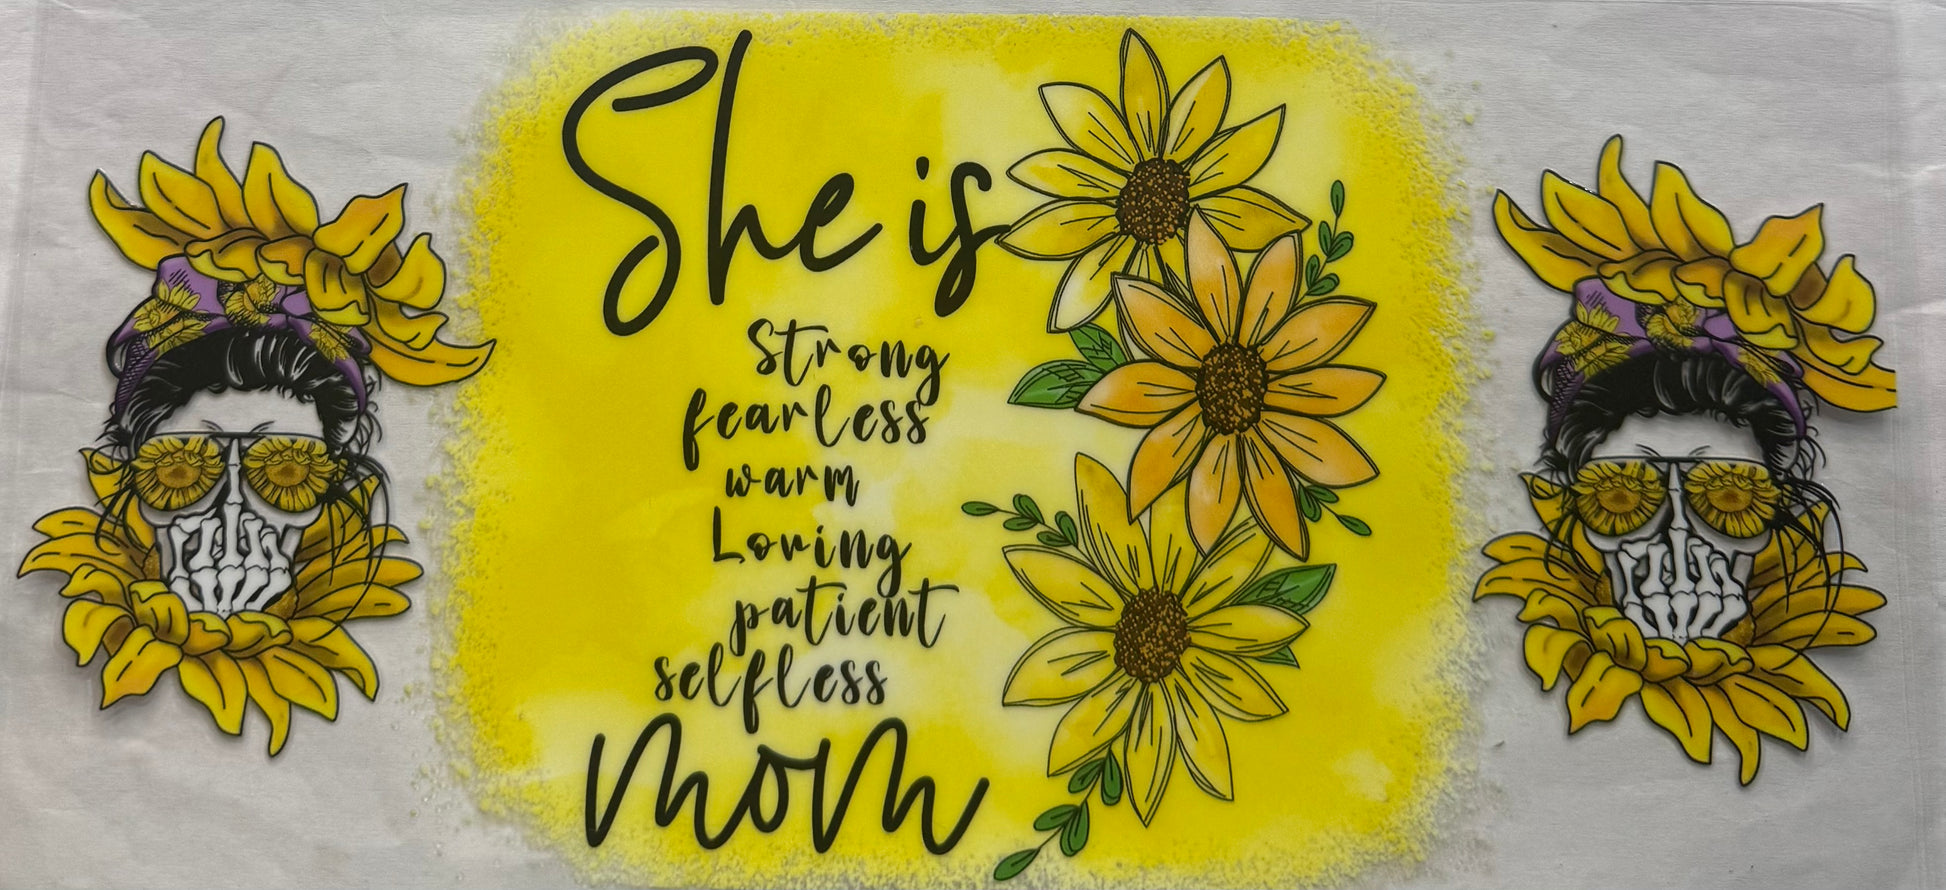 She is
Strong
fearless
warm
Loving
patient
selfless
mom